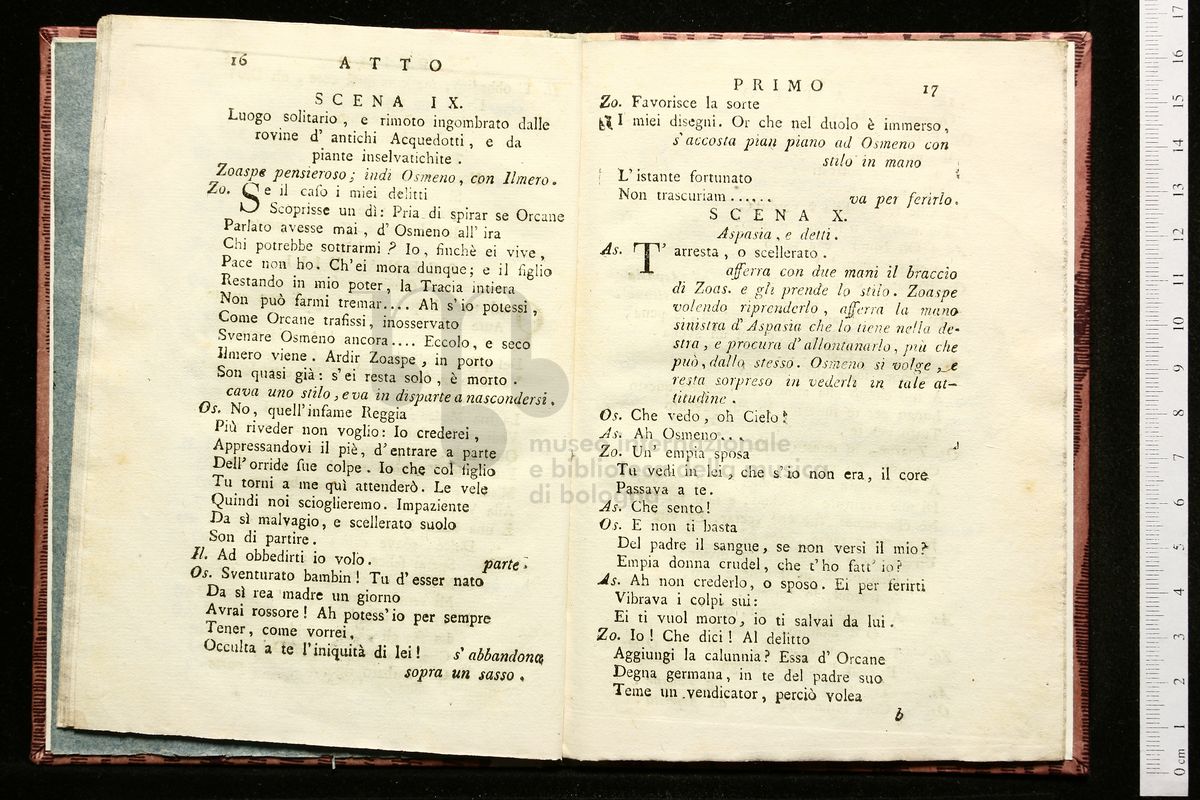 16 ATTO
SCENA IX.
Luogo solitario, e rimoto ingombrato dalle
rovine d' antichi Acquedotti, e da
piante inselvatichite.
Zoaspe pensieroso; indi Osmeno, con Ilmero.
Zo. Se il caso i miei delitti
Scoprisse un dì: Pria di spirar se Orcane
Parlato avesse mai, d' Osmeno all' ira
Chi potrebbe sottrarmi? Io, finchè ei vive,
Pace non ho. Ch'ei mora dunque; e il figlio
Restando in mio poter, la Tracia intiera
Non può farmi tremar.... Ah s'io potessi,
Come Orcane trafissi, inosservato
Svenare Osmeno ancora.... Eccolo, e seco
Ilmero viene. Ardir Zoaspe, in porto
Son quasi già: s'ei resta solo, è morto.
cava uno stilo, e va in disparte a nascondersi.
Os. No, quell'infame Reggia
Più riveder non voglio: Io crederei,
Appressandovi il piè, d'entrare a parte
Dell' orride sue colpe. Io che col figlio
Tu torni a me quì attenderò. Le vele
Quindi noi scioglieremo. Impaziente
Da sì malvagio, e scellerato suolo
Son di partire.
Il. Ad obbedirti io volo. parte.
Os. Sventurato bambin! Tu d' esser nato
Da sì rea madre un giorno
Avrai rossore! Ah potess'io per sempre
Tener, come vorrei,
Occulta a te l'iniquità di lei! s' abbandona
sopra un sasso.
PRIMO 17
Zo. Favorisce la sorte
I miei disegni. Or che nel duolo è immerso,
s'accosta pian piano ad Osmeno con
stilo in mano
L' istante fortunato
Non trascuriam...... va per ferirlo.
SCENA X.
Aspasia, e detti.
As. T' arresta, o scellerato.
afferra con due mani il braccio
di Zoas. e gli prende lo stilo. Zoaspe
volendo riprenderlo, afferra la mano
sinistra d'Aspasia che lo tiene nella de-
stra, e procura d'allontanarlo, più che
può, dallo stesso. Osmeno si volge, e
resta sorpreso in vederli in tale at-
titudine.
Os. Che vedo, oh Cielo!
As. Ah Osmeno...
Zo. Un' empia sposa
Tu vedi in lei, che s'io non era, il core
Passava a te.
As. Che sento!
Os. E non ti basta
Del padre il sangue, se non versi il mio?
Empia donna crudel, che t'ho fatt' io?
As. Ah non crederlo, o sposo. Ei per ferirti
Vibrava i colpi sui:
Ei ti vuol morto, io ti salvai da lui.
Zo. Io! Che dici! Al delitto
Aggiungi la calunnia? Essa d' Orcane
Degna germana, in te del padre suo
Teme un vendicator, perciò volea
b
museo internazionale
e biblioteca della musica
di bologna
0 cm 1 2 3 4 5 6 7 8 9 10 11 12 13 14 15 16 17